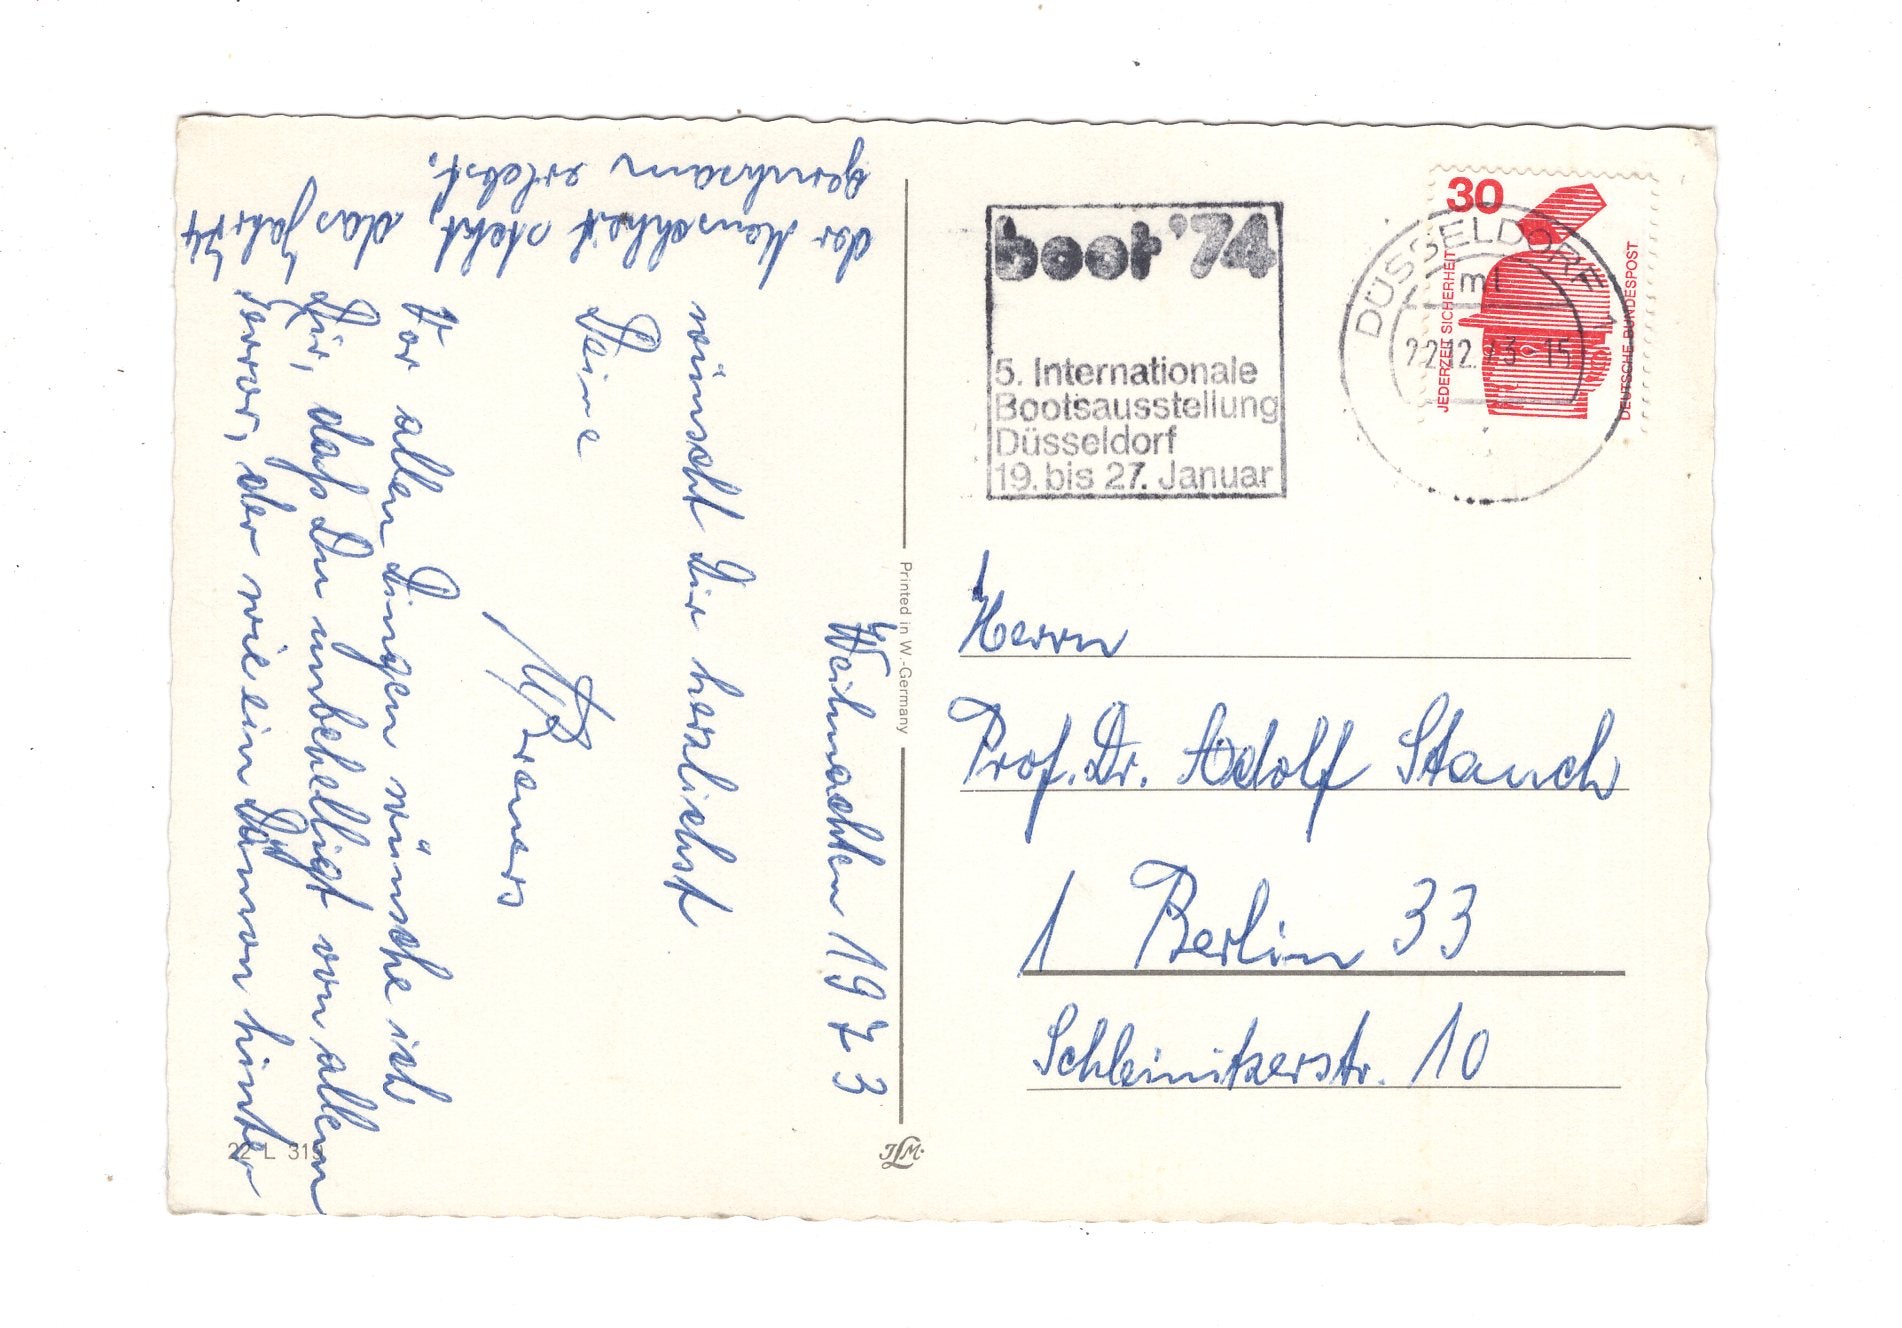 Weihnachten 1973
wünscht Dir herzlichst
Deine
Breuers
Vor allen Dingen wünsche ich
Dir, daß Du unbehelligt von allem
Terror, der wie ein Dämon hinter
der Menschheit steht, das Jahr 74
geruhsam erlebst.
Printed in W.-Germany
22 L 319
JLM
boot '74
5. Internationale
Bootsausstellung
Düsseldorf
19. bis 27. Januar
DÜSSELDORF 1
mt
22.12.73 - 15
30
JEDERZEIT SICHERHEIT
DEUTSCHE BUNDESPOST
Herrn
Prof. Dr. Adolf Stauch
1 Berlin 33
Schleinitzerstr. 10